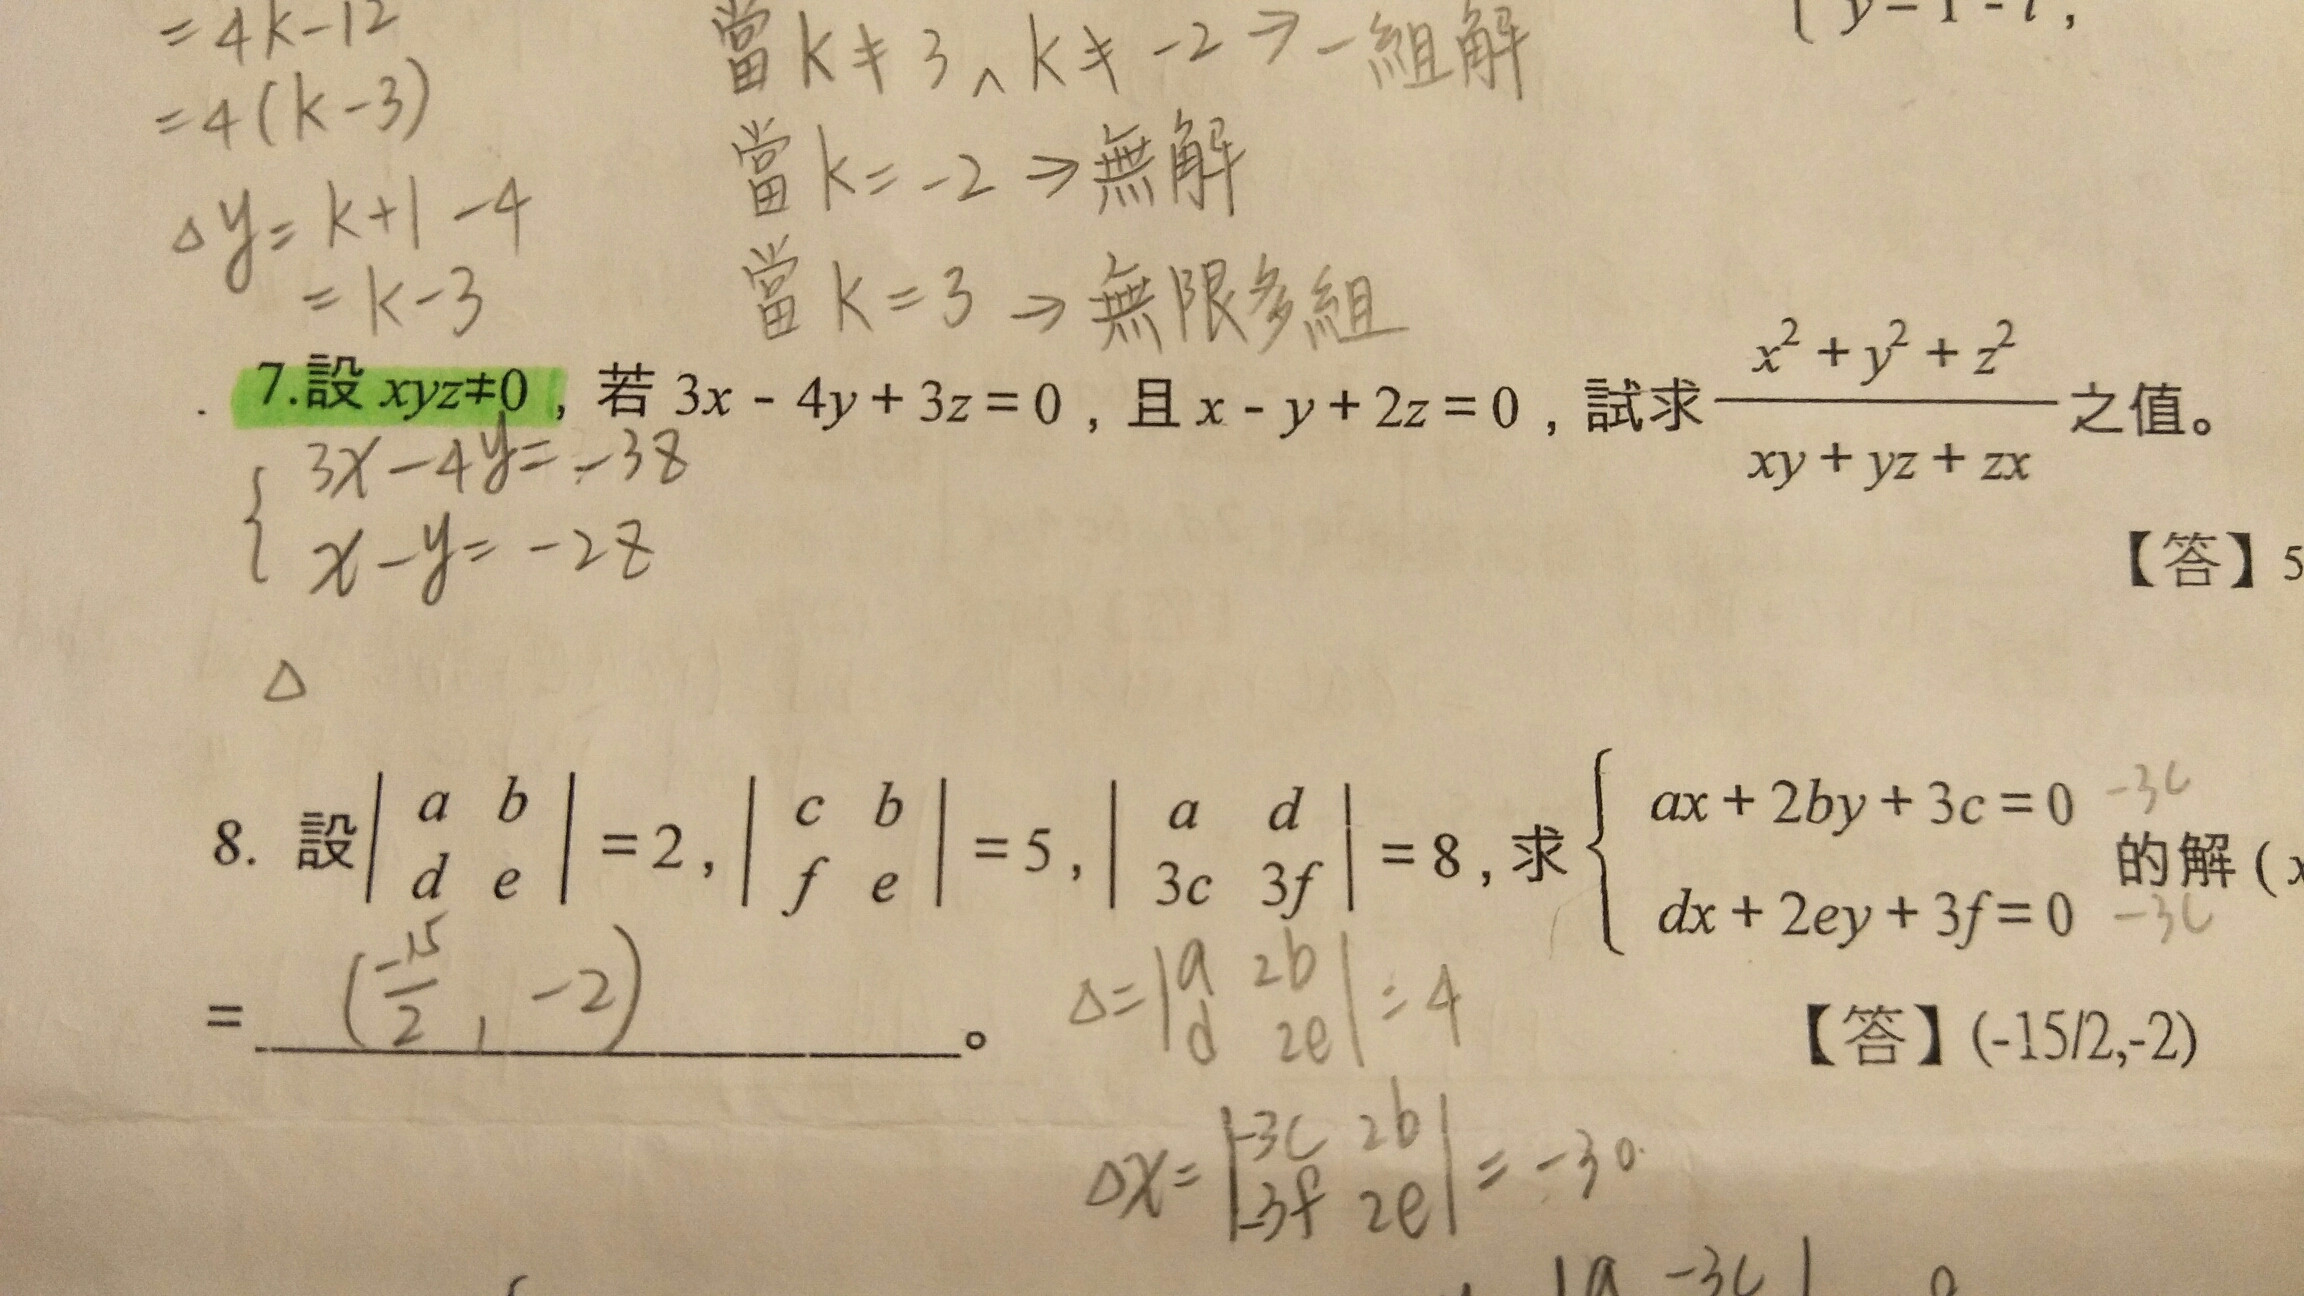 =4k-12
=4(k-3)
△y=k+1-4
=k-3
當k≠3∧k≠-2⇒一組解
當k=-2⇒無解
當k=3⇒無限多組
7.設 xyz≠0, 若 3x - 4y + 3z = 0 , 且 x - y + 2z = 0 , 試求 \frac{x^2+y^2+z^2}{xy+yz+zx} 之值。
{ 3x-4y=-3z
x-y=-2z
【答】5
△
8. 設 | a b ; d e | = 2 , | c b ; f e | = 5 , | a d ; 3c 3f | = 8 , 求 { ax + 2by + 3c = 0 -3c
dx + 2ey + 3f = 0 的解 (x
= (-15/2 , -2) 。
△=| a 2b ; d 2e |=4
【答】(-15/2,-2)
△x=| -3c 2b ; -3f 2e |=-30
| a -3c |